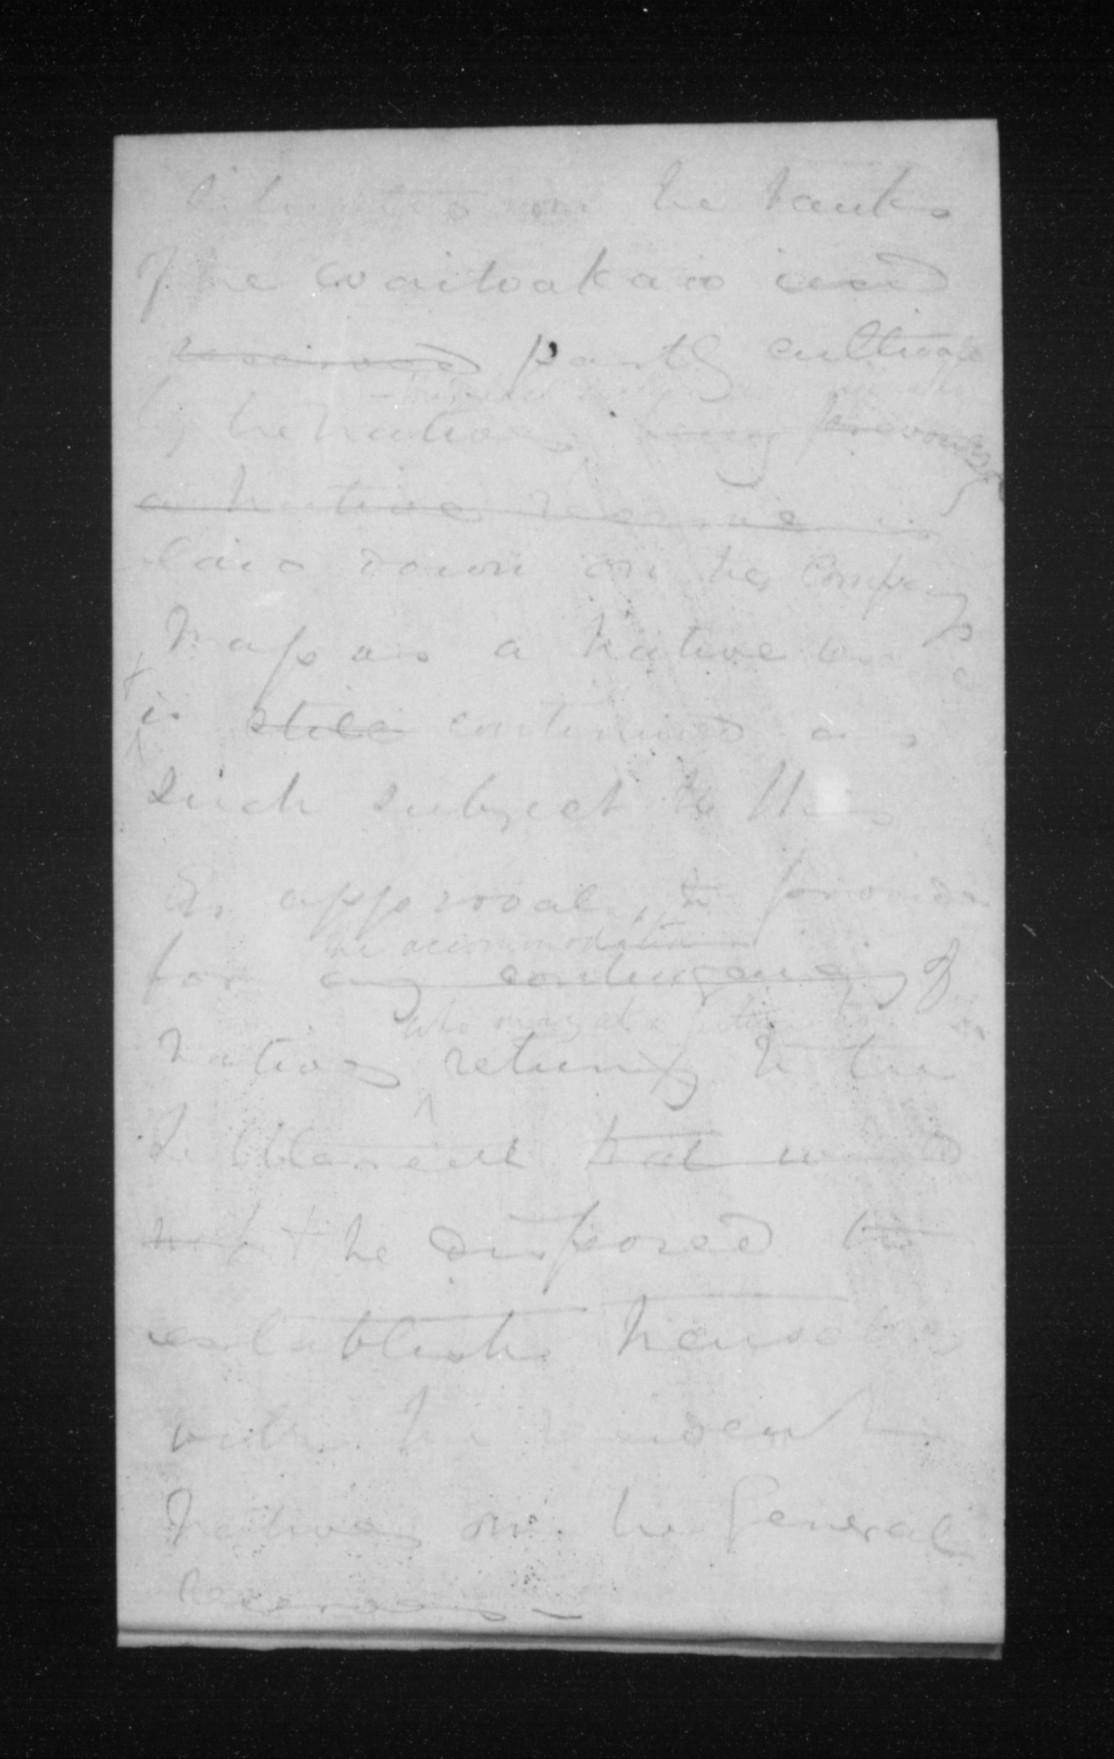 Situated on the banks
of the Waiwakaio and
reserved partly cultivated
by the Natives being previously
a Native reserve is
laid down on the Company's
Map as a Native
is still continued as
such subject to His
Ex. approval, to provide
the accommodation
for any contingency of
who may at a future
Natives returning to the
Settlement that
be disposed to
establish themselves
with the resident
Natives on the General
Reserves.